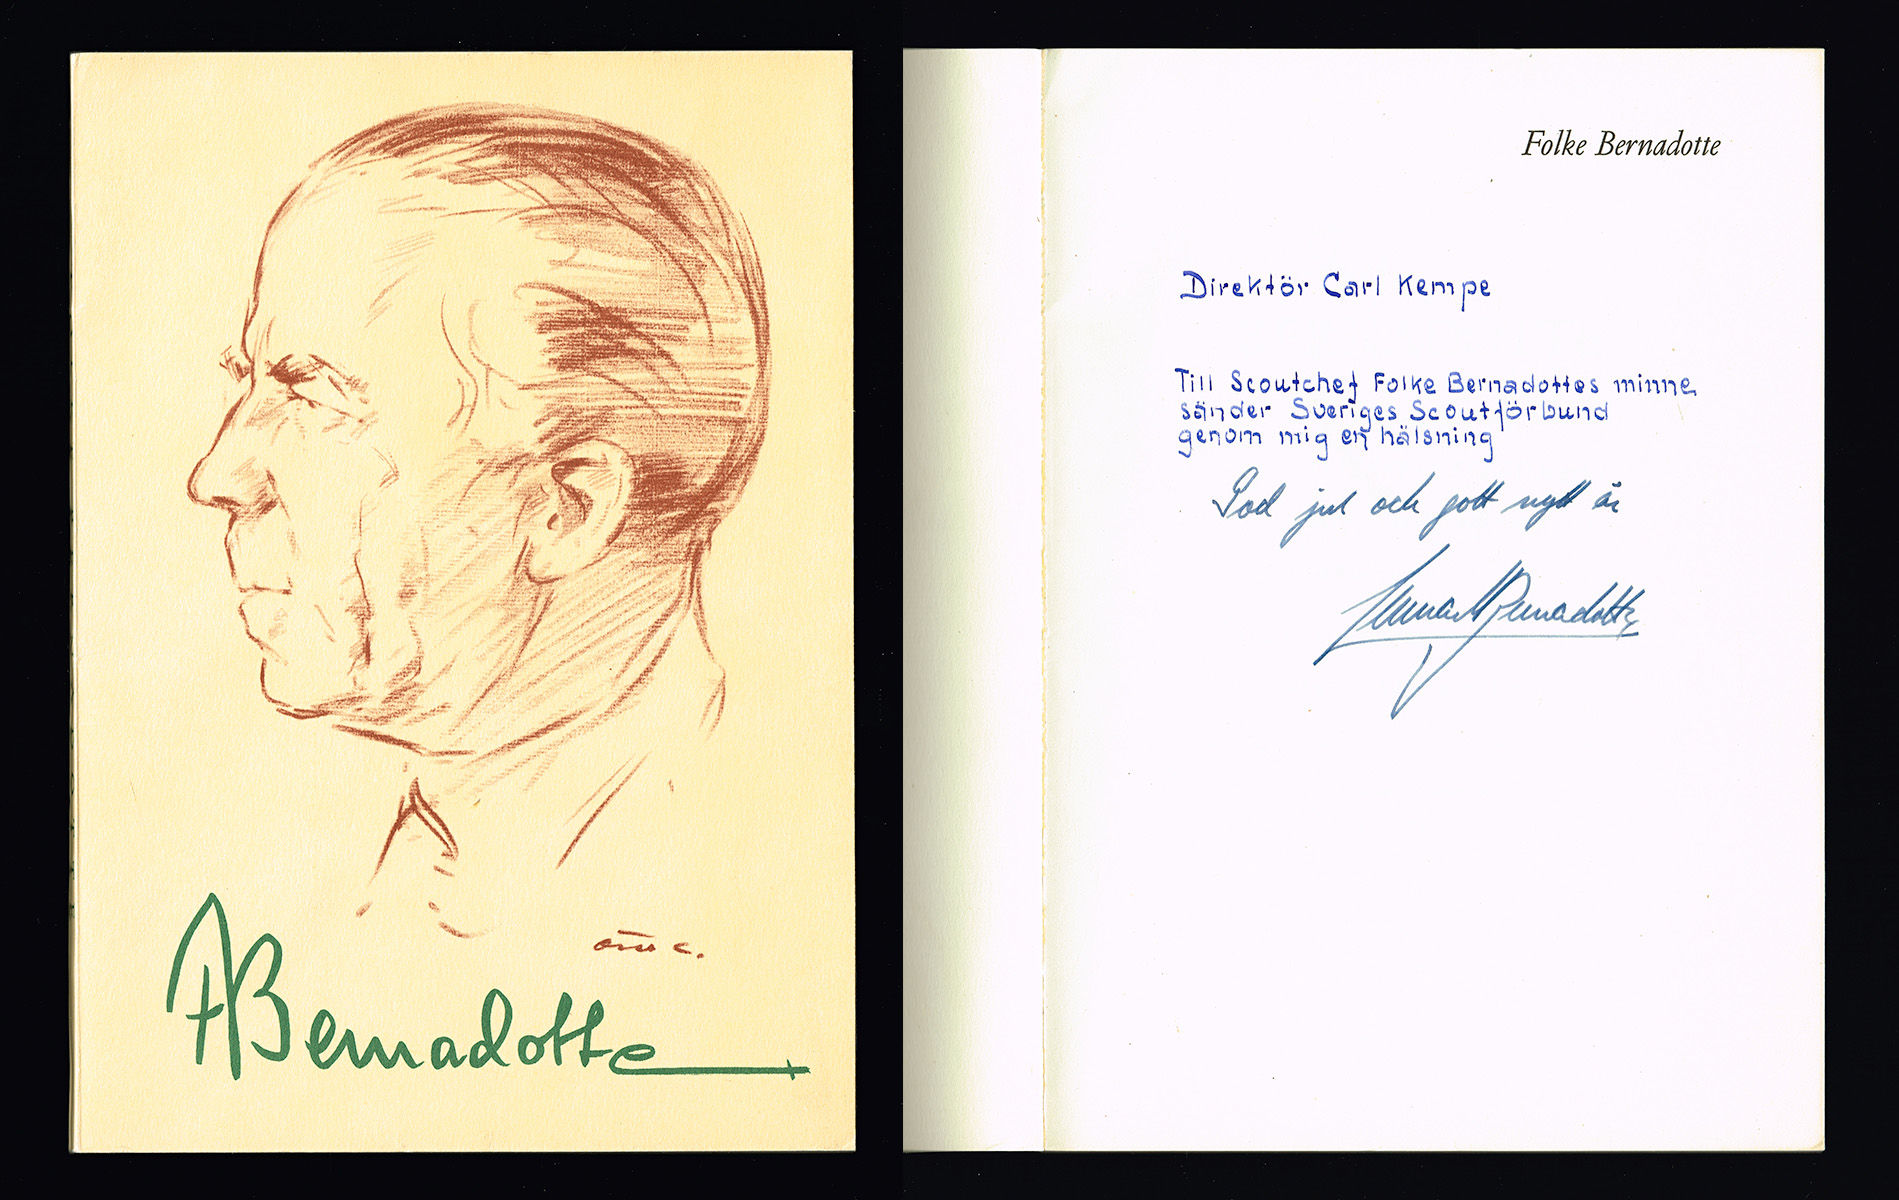 FBernadotte
Folke Bernadotte
Direktör Carl Kempe
Till Scoutchef Folke Bernadottes minne
sänder Sveriges Scoutförbund
genom mig en hälsning
God jul och gott nytt år
Lennart Bernadotte